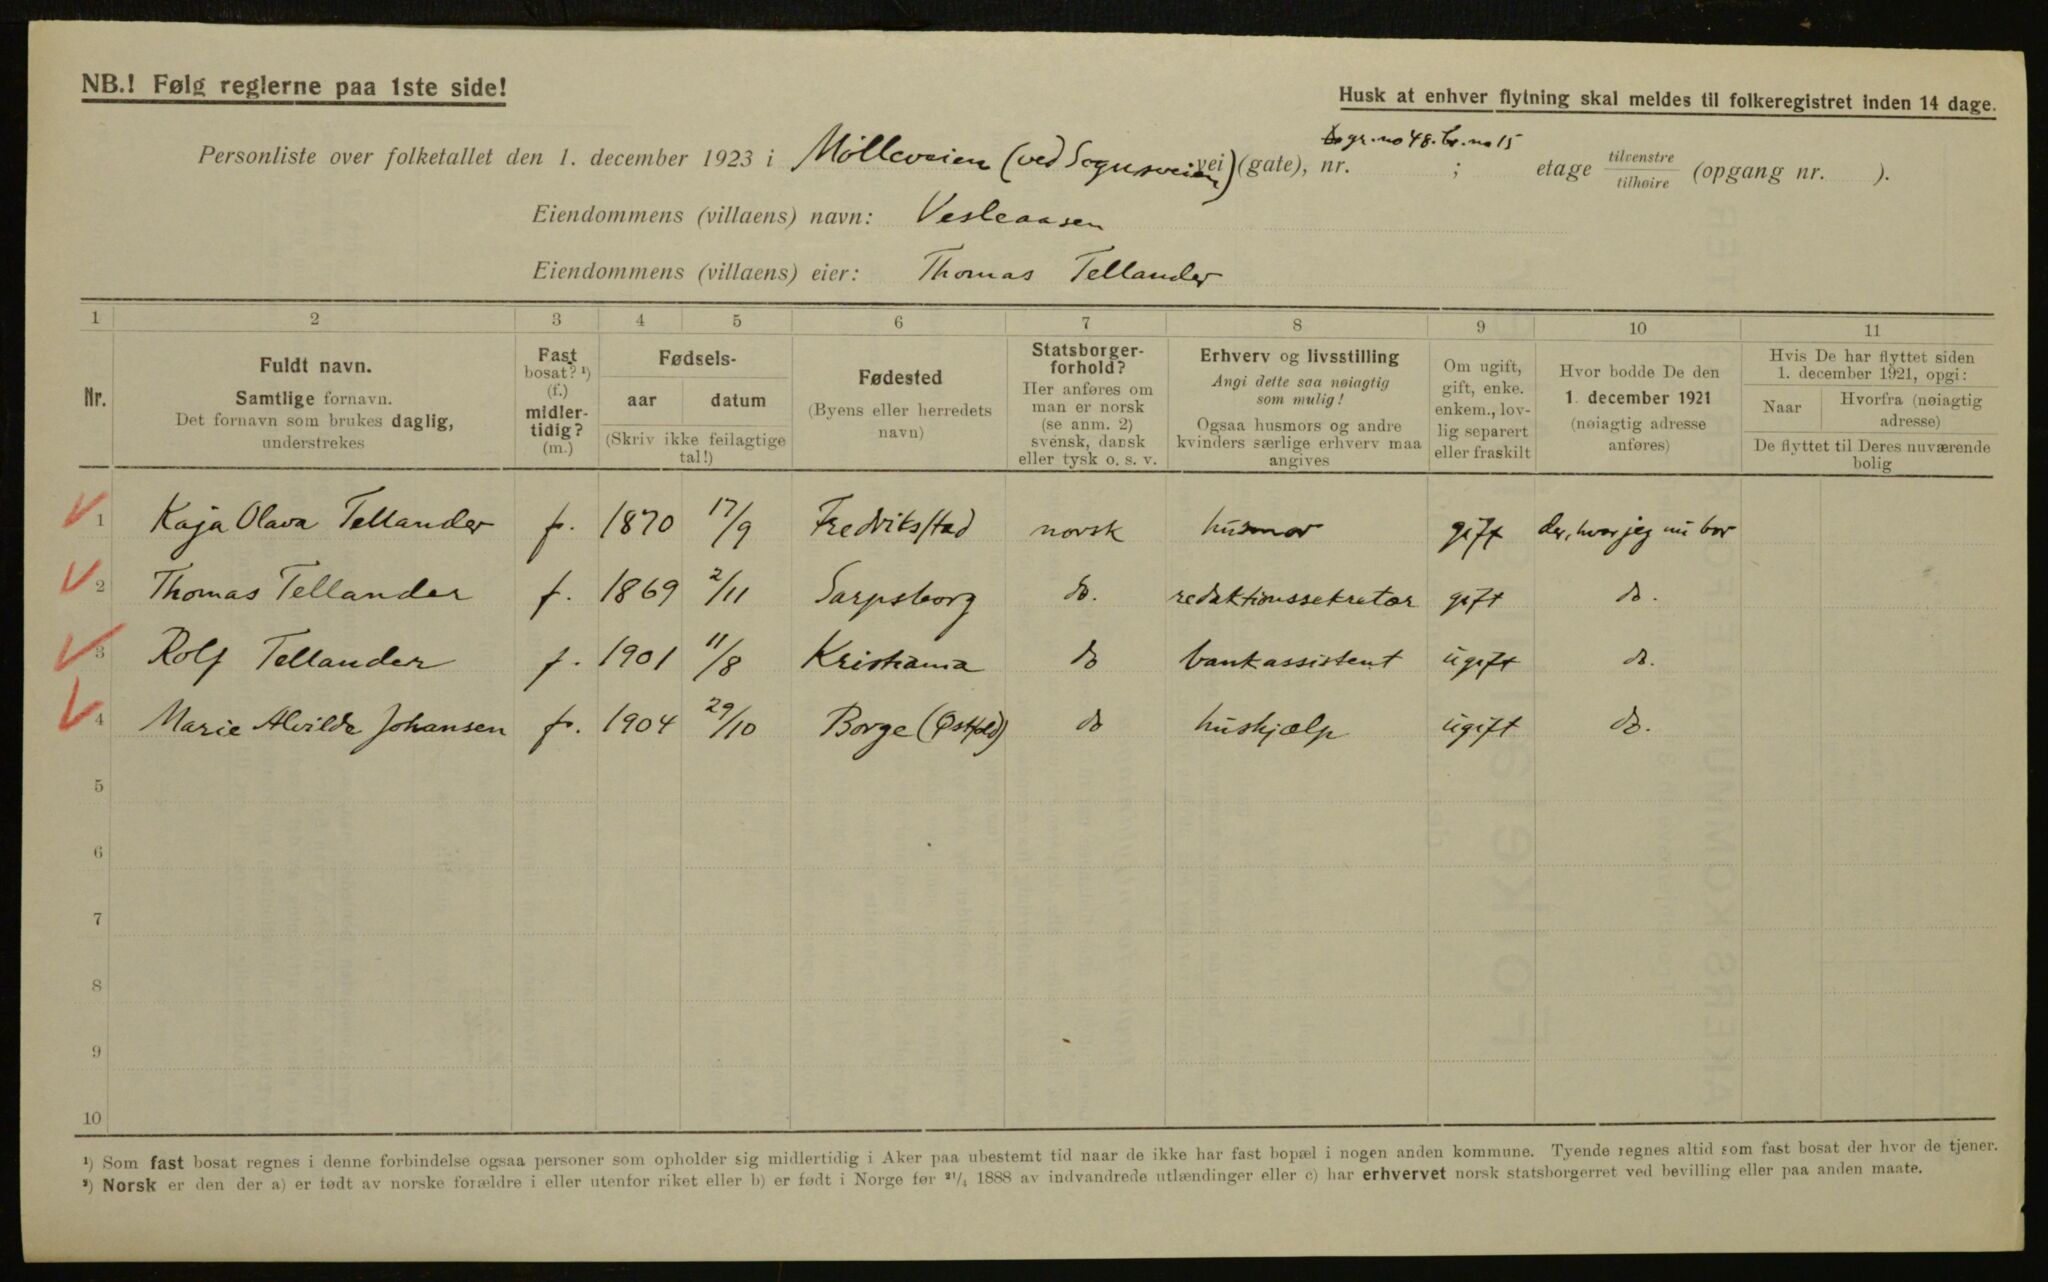 NB.! Følg reglerne paa 1ste side!
Husk at enhver flytning skal meldes til folkeregistret inden 14 dage.
Personliste over folketallet den 1. december 1923 i Mölleveien (ved Sognsveien) vei (gate), nr. gr.no 48. br. no 15 ; etage tilvenstre/tilhøire (opgang nr. ).
Eiendommens (villaens) navn: Vesleaasen
Eiendommens (villaens) eier: Thomas Tellander
1 2 3 4 5 6 7 8 9 10 11
Nr.
Fuldt navn.
Samtlige fornavn.
Det fornavn som brukes daglig, understrekes
Fast bosat? ¹) (f.) midlertidig? (m.)
Fødsels-
aar
datum
(Skriv ikke feilagtige tal!)
Fødested
(Byens eller herredets navn)
Statsborgerforhold?
Her anføres om man er norsk (se anm. 2) svensk, dansk eller tysk o. s. v.
Erhverv og livsstilling
Angi dette saa nøiagtig som mulig!
Ogsaa husmors og andre kvinders særlige erhverv maa angives
Om ugift, gift, enke. enkem., lovlig separert eller fraskilt
Hvor bodde De den 1. december 1921 (nøiagtig adresse anføres)
Hvis De har flyttet siden 1. december 1921, opgi:
Naar
Hvorfra (nøiagtig adresse)
De flyttet til Deres nuværende bolig
1 Kaja Olava Tellander f. 1870 17/9 Fredrikstad norsk husmor gift der, hvor jeg nu bor
2 Thomas Tellander f. 1869 2/11 Sarpsborg do. redaktionssekretær gift do.
3 Rolf Tellander f. 1901 11/8 Kristiania do bankassistent ugift do.
4 Marie Alvilde Johansen f. 1904 29/10 Borge (Østfold) do hushjælp ugift do.
5
6
7
8
9
10
¹) Som fast bosat regnes i denne forbindelse ogsaa personer som opholder sig midlertidig i Aker paa ubestemt tid naar de ikke har fast bopæl i nogen anden kommune. Tyende regnes altid som fast bosat der hvor de tjener.
²) Norsk er den der a) er født av norske forældre i eller utenfor riket eller b) er født i Norge før ²¹/₄ 1888 av indvandrede utlændinger eller c) har erhvervet norsk statsborgerret ved bevilling eller paa anden maate.